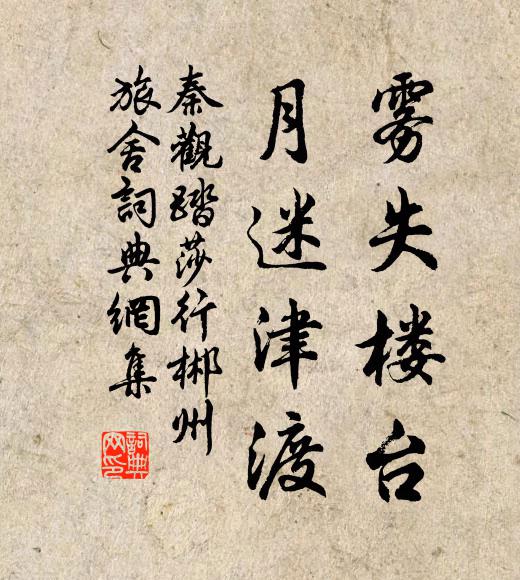 雾失楼台
月迷津渡
秦觀踏莎行郴州
旅舍詞典網集
詞典
网印